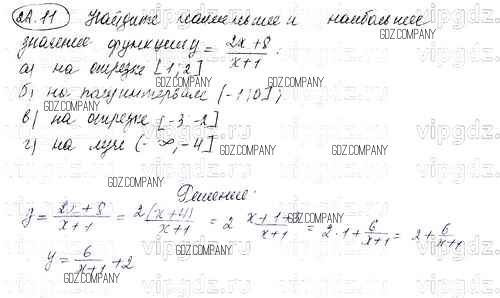 22.11 Найдите наименьшее и наибольшее
значение функции y = (2x+8)/(x+1) :
а) на отрезке [1; 2]
б) на полуинтервале (-1; 0];
в) на отрезке [-3; -2]
г) на луче (-∞, -4]
Решение:
y = (2x+8)/(x+1) = 2(x+4)/(x+1) = 2 (x+1+3)/(x+1) = 2·1 + 6/(x+1) = 2 + 6/(x+1)
y = 6/(x+1) + 2
GDZ.COMPANY
vipgdz.com